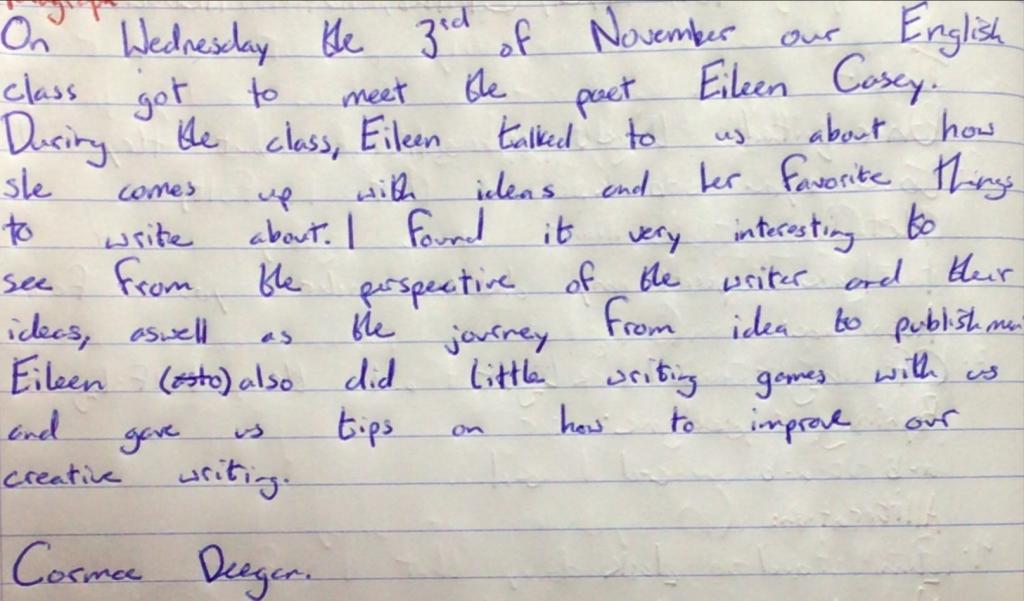 On Wednesday the 3rd of November our English
class got to meet the poet Eileen Casey.
During the class, Eileen talked to us about how
she comes up with ideas and her favorite things
to write about. I found it very interesting to
see from the perspective of the writer and their
ideas, aswell as the journey from idea to
Eileen also did little writing games with us
and gave us tips on how to improve our
creative writing.
Deegan.